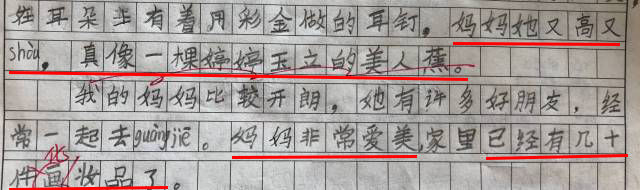 在耳朵上有着用彩金做的耳钉。妈妈她又高又
shòu。真像一棵婷婷玉立的美人蕉。
我的妈妈比较开朗，她有许多好朋友，经
常一起去guàngjiē。妈妈非常爱美，家里已经有几十
化
件画妆品了。